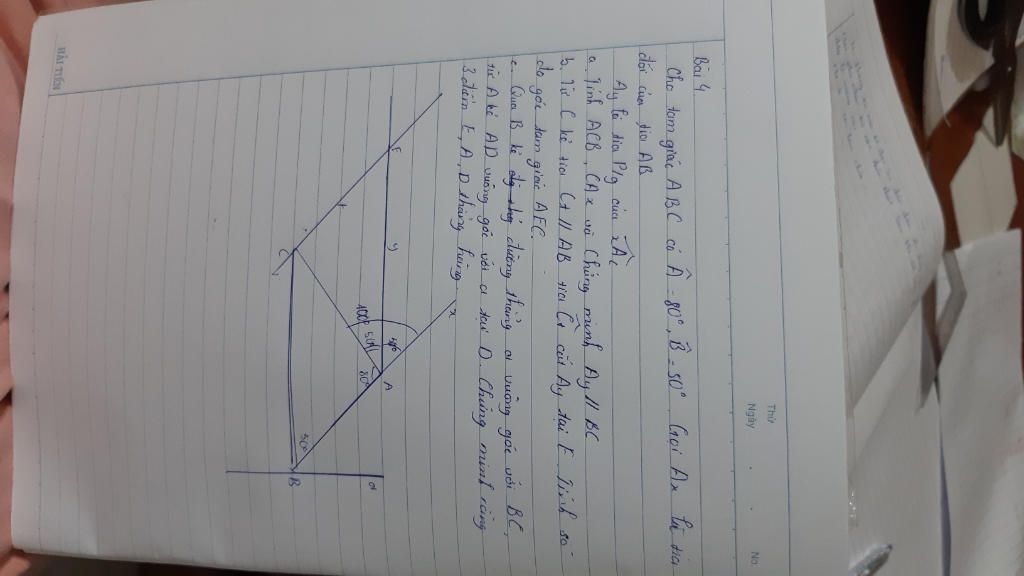 Thứ
Ngày
No.
Bài 4
Cho tam giác ABC có Â = 80°, B̂ = 50° Gọi Ax là tia
đối của tia AB
Ay là tia P/g của xÂC
a. Tính ACB, CAx và Chứng minh Ay // BC
b. Từ C kẻ tia Ct // AB tia Ct cắt Ay tại E. Tính số
đo góc tam giác AEC.
c. Qua B kẻ đường thẳng a vuông góc với BC,
từ A kẻ AD vuông góc với a tại D. Chứng minh rằng
3 điểm E, A, D thẳng hàng
x
E
y
A
t
100°
50°
80°
C
50°
B
a
HẢI TIẾN